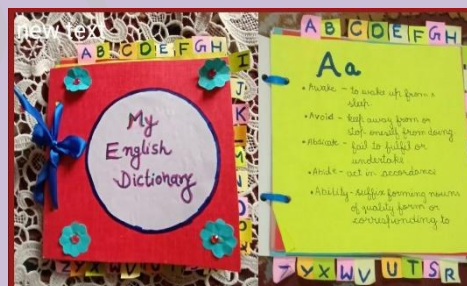 new text
A B C D E F G H
I
J
K
M
N
My
English
Dictionary
Z Y X W V U T S R
A B C D E F G H
Aa
• Awake – to wake up from a
sleep.
• Avoid – keep away from or
stop oneself from doing
fail to fulfil or
undertake
act in accordance
• Ability – suffix forming nouns
of quality form or
corresponding to
Z Y X W V U T S R